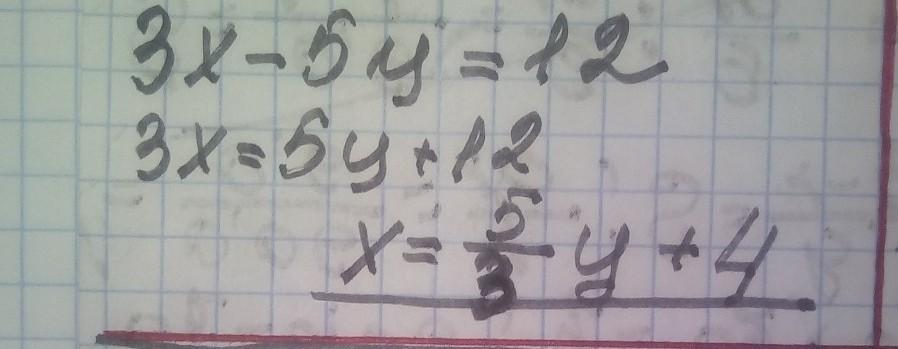 3x-5y=12
3x=5y+12
x=5/3 y+4